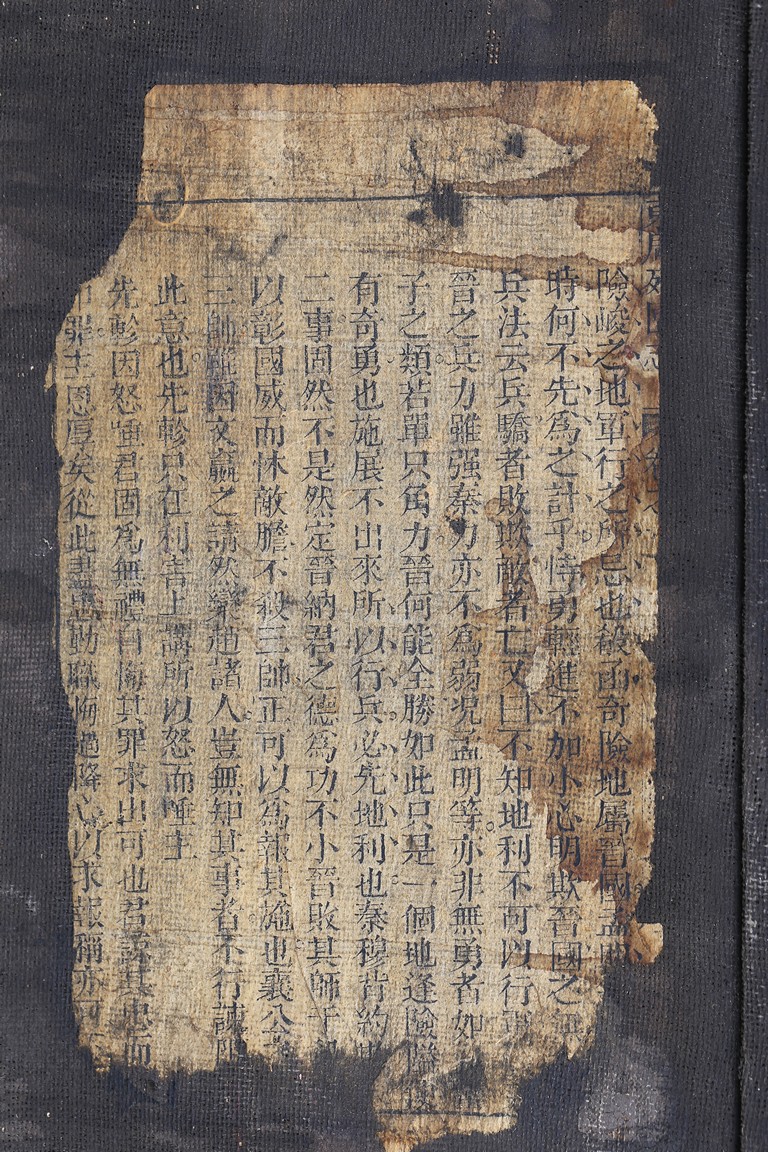 險峻之地軍行之所忌也殽函奇險地屬晉國孟明
時何不先為之計乎恃勇輕進不加小心明欺晉國之無
兵法云兵驕者敗欺敵者亡又曰不知地利不可以行軍
晉之兵力雖强秦力亦不為弱况孟明等亦非無勇者如
子之類若單只角力晉何能全勝如此只是一個地逢險隘
有奇勇也施展不出來所以行兵必先地利也秦穆背約
二事固然不是然定晉納君之德為功不小晉敗其師于殽
以彰國威而怵敵膽不殺三帥正可以為報其施也襄公
三帥雖因文嬴之請然欒趙諸人豈無知其事者不行諫阻
此意也先軫只在利害上講所以怒而唾主
先軫因怒唾君固為無禮自悔其罪求出可也君諒其忠而
罪主恩厚矣從此盡勤職悔過降心以求報稱亦可